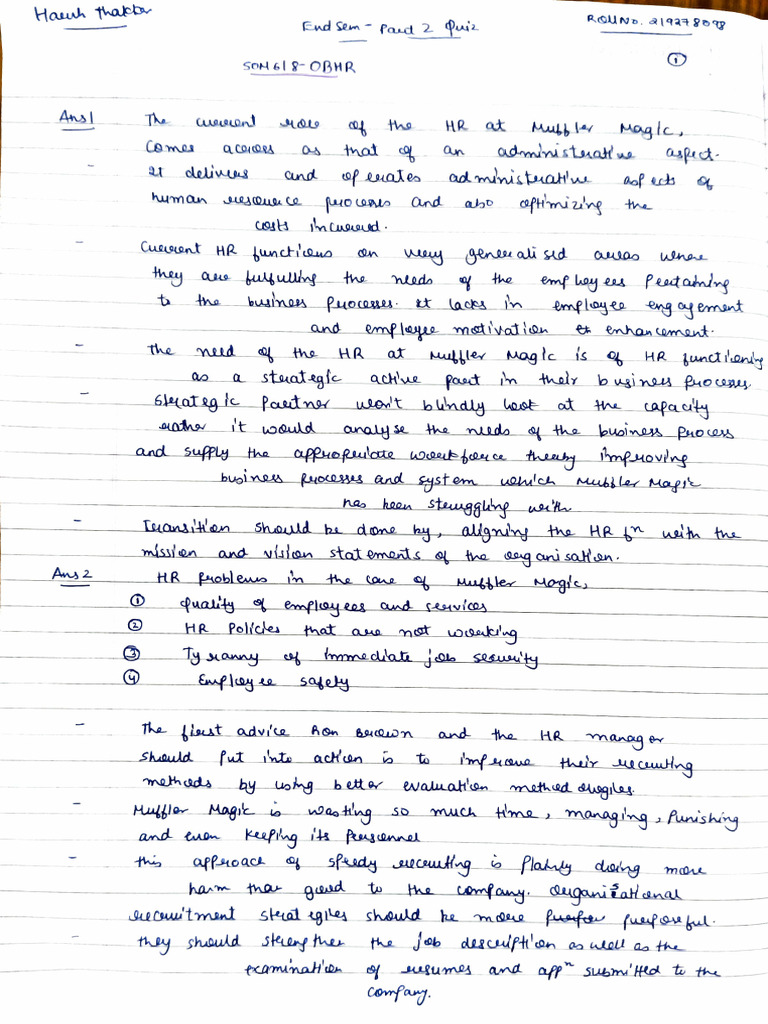 Harsh Thakker
End Sem - Part 2 Quiz
Roll No. 219278098
①
SOM618-OBHR
Ans1 The current role of the HR at Muffler Magic,
comes across as that of an administrative aspect.
- It delivers and operates administrative aspects of
human resource processes and also optimizing the
costs incurred.
- Current HR functions on very generalised areas where
they are fulfulling the needs of the employees pertaining
to the business processes. It lacks in employee engagement
and employee motivation & enhancement.
- The need of the HR at Muffler Magic is of HR functioning
as a strategic active part in their business processes.
- Strategic partner won't blindly look at the capacity
rather it would analyse the needs of the business process
and supply the appropriate workforce thereby improving
business processes and system which Muffler Magic
has been struggling with
- Transition should be done by, aligning the HR fⁿ with the
mission and vision statements of the organisation.
Ans2 HR problems in the case of Muffler Magic,
① Quality of employees and services
② HR Policies that are not working
③ Tyranny of immediate job security
④ Employee safety
- The first advice Ron Brown and the HR manager
should put into action is to improve their recruiting
methods by using better evaluation methodologies.
- Muffler Magic is wasting so much time, managing, punishing
and even keeping its personnel
- this approach of speedy recruiting is plainly doing more
harm than good to the company. Organisational
recruitment strategies should be more purposeful.
- they should strengthen the job description as well as the
examination of resumes and appⁿ submitted to the
company.